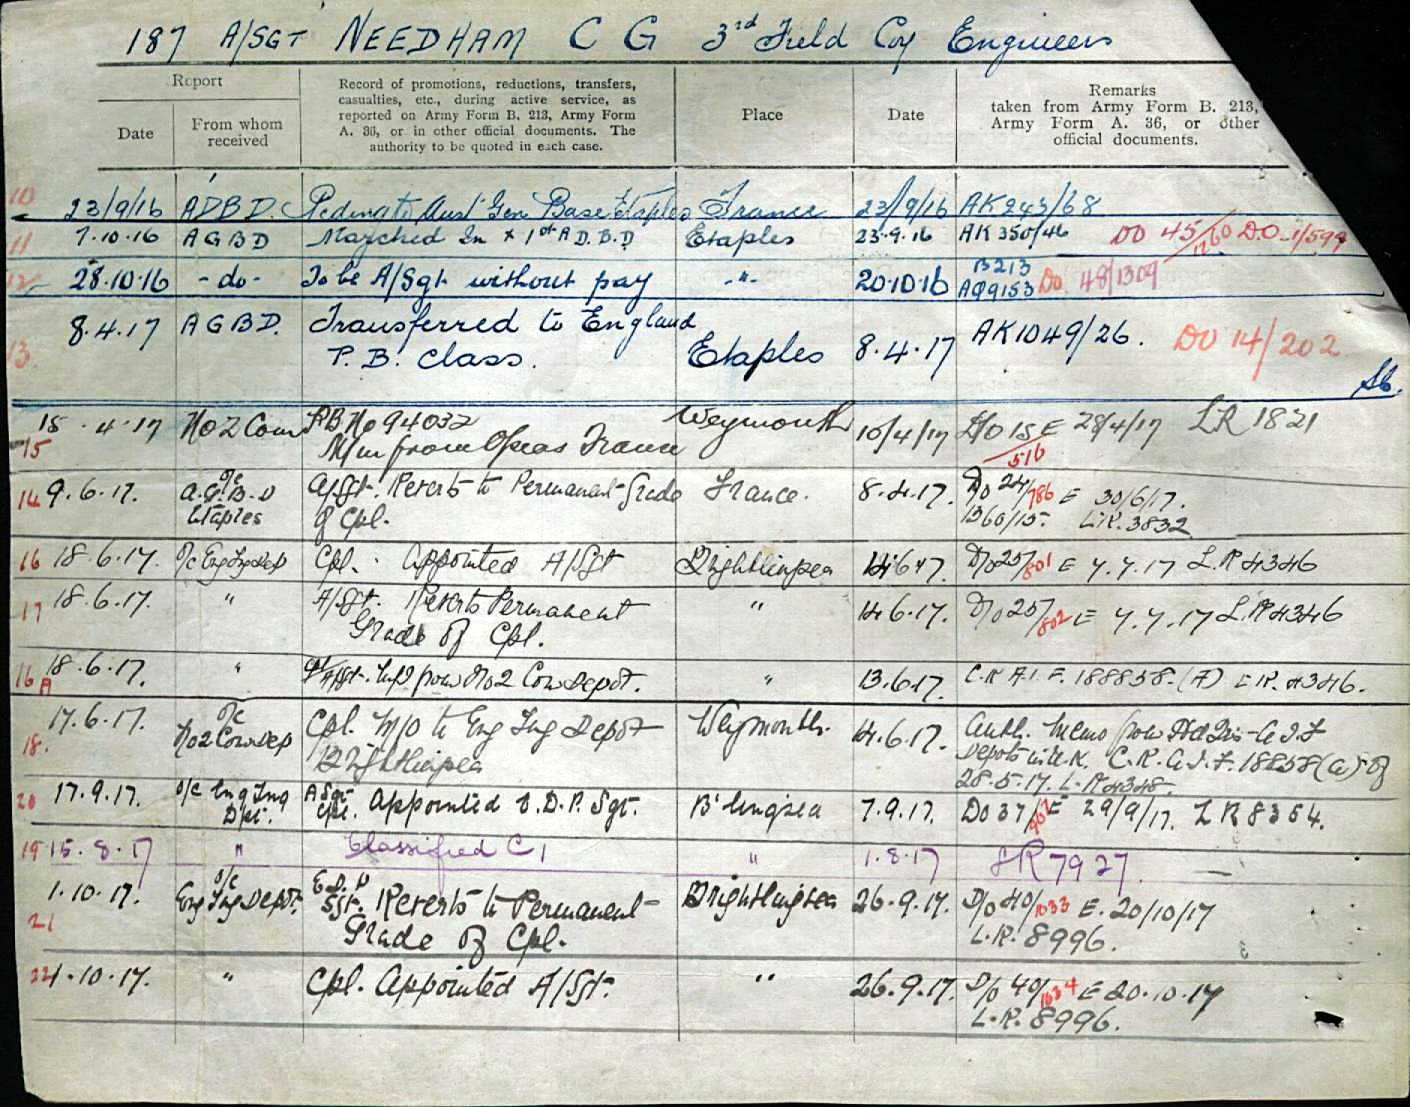 187 A/SGT NEEDHAM C G 3rd Field Coy Engineers
Report
Date
From whom
received
Record of promotions, reductions, transfers,
casualties, etc., during active service, as
reported on Army Form B. 213, Army Form
A. 36, or in other official documents. The
authority to be quoted in each case.
Place
Date
Remarks
taken from Army Form B. 213,
Army Form A. 36, or other
official documents.
10
23/9/16 ADBD. Aust Gen Base Etaples France 23/9/16 AK243/68
11
7.10.16 AGBD Marched In 1st A.D.B.D Etaples 23.9.16 AK350/46 DO 45/1260 D.O.1/599
12
28.10.16 - do - To be A/Sgt without pay -"- 20.10.16 B213
AQ9153 DO 48/1309
13
8.4.17 AGBD. Transferred to England
P.B. Class. Etaples 8.4.17 AK1049/26. DO 14/202
15
15.4.17 No 2 Com PB No 94032 Weymouth 15/4/17 D/O 15 E 28/4/17 LR 1821
M/in from O/seas France
516
14
9.6.17. O/C
A.G.B.D
Etaples A/Sgt. Reverts to Permanent Grade
of Cpl. France. 8.4.17. D/O 24/786 E 30/6/17.
1360/15. L.R. 3832
16
18.6.17. O/C Eng Tng Dep Cpl. Appointed A/Sgt Brightlingsea 14.6.17. D/o 25/801 E 7.7.17 L.R 4346
17
18.6.17. " A/Sgt. Reverts Permanent
Grade of Cpl. " 14.6.17. D/o 25/802 E 7.7.17 L.R 4346
16A
18.6.17. " A/Sgt. from No 2 Com Depot. " 13.6.17. C.R A.I.F. 188858.(A) L.R. 4346.
18.
17.6.17. O/C
No 2 Com Dep Cpl. M/O to Eng Tng Depot
Brightlingsea Weymouth. 14.6.17. Auth. Memo from Hd Qrs A.I.F
Depots in U.K. C.R. A.I.F. 18858(a) of
28.5.17. L.R 4348.
20
17.9.17. O/C Eng Tng
Dpt. A Sgt
Cpl. Appointed E.D.P. Sgt. B'lingsea 7.9.17. DO 37/967 E 29/9/17. LR 8354.
19
15.8.17 " Classified C1 " 1.8.17 LR 7927.
21
1.10.17. O/C
Eng Tng Depot. E.D.P
Sgt. Reverts to Permanent
Grade of Cpl. Brightlingsea 26.9.17. D/o 40/1033 E. 20/10/17
L.R. 8996.
22
1.10.17. " Cpl. Appointed A/Sgt. " 26.9.17. D/o 40/1034 E 20.10.17
L.R. 8996.